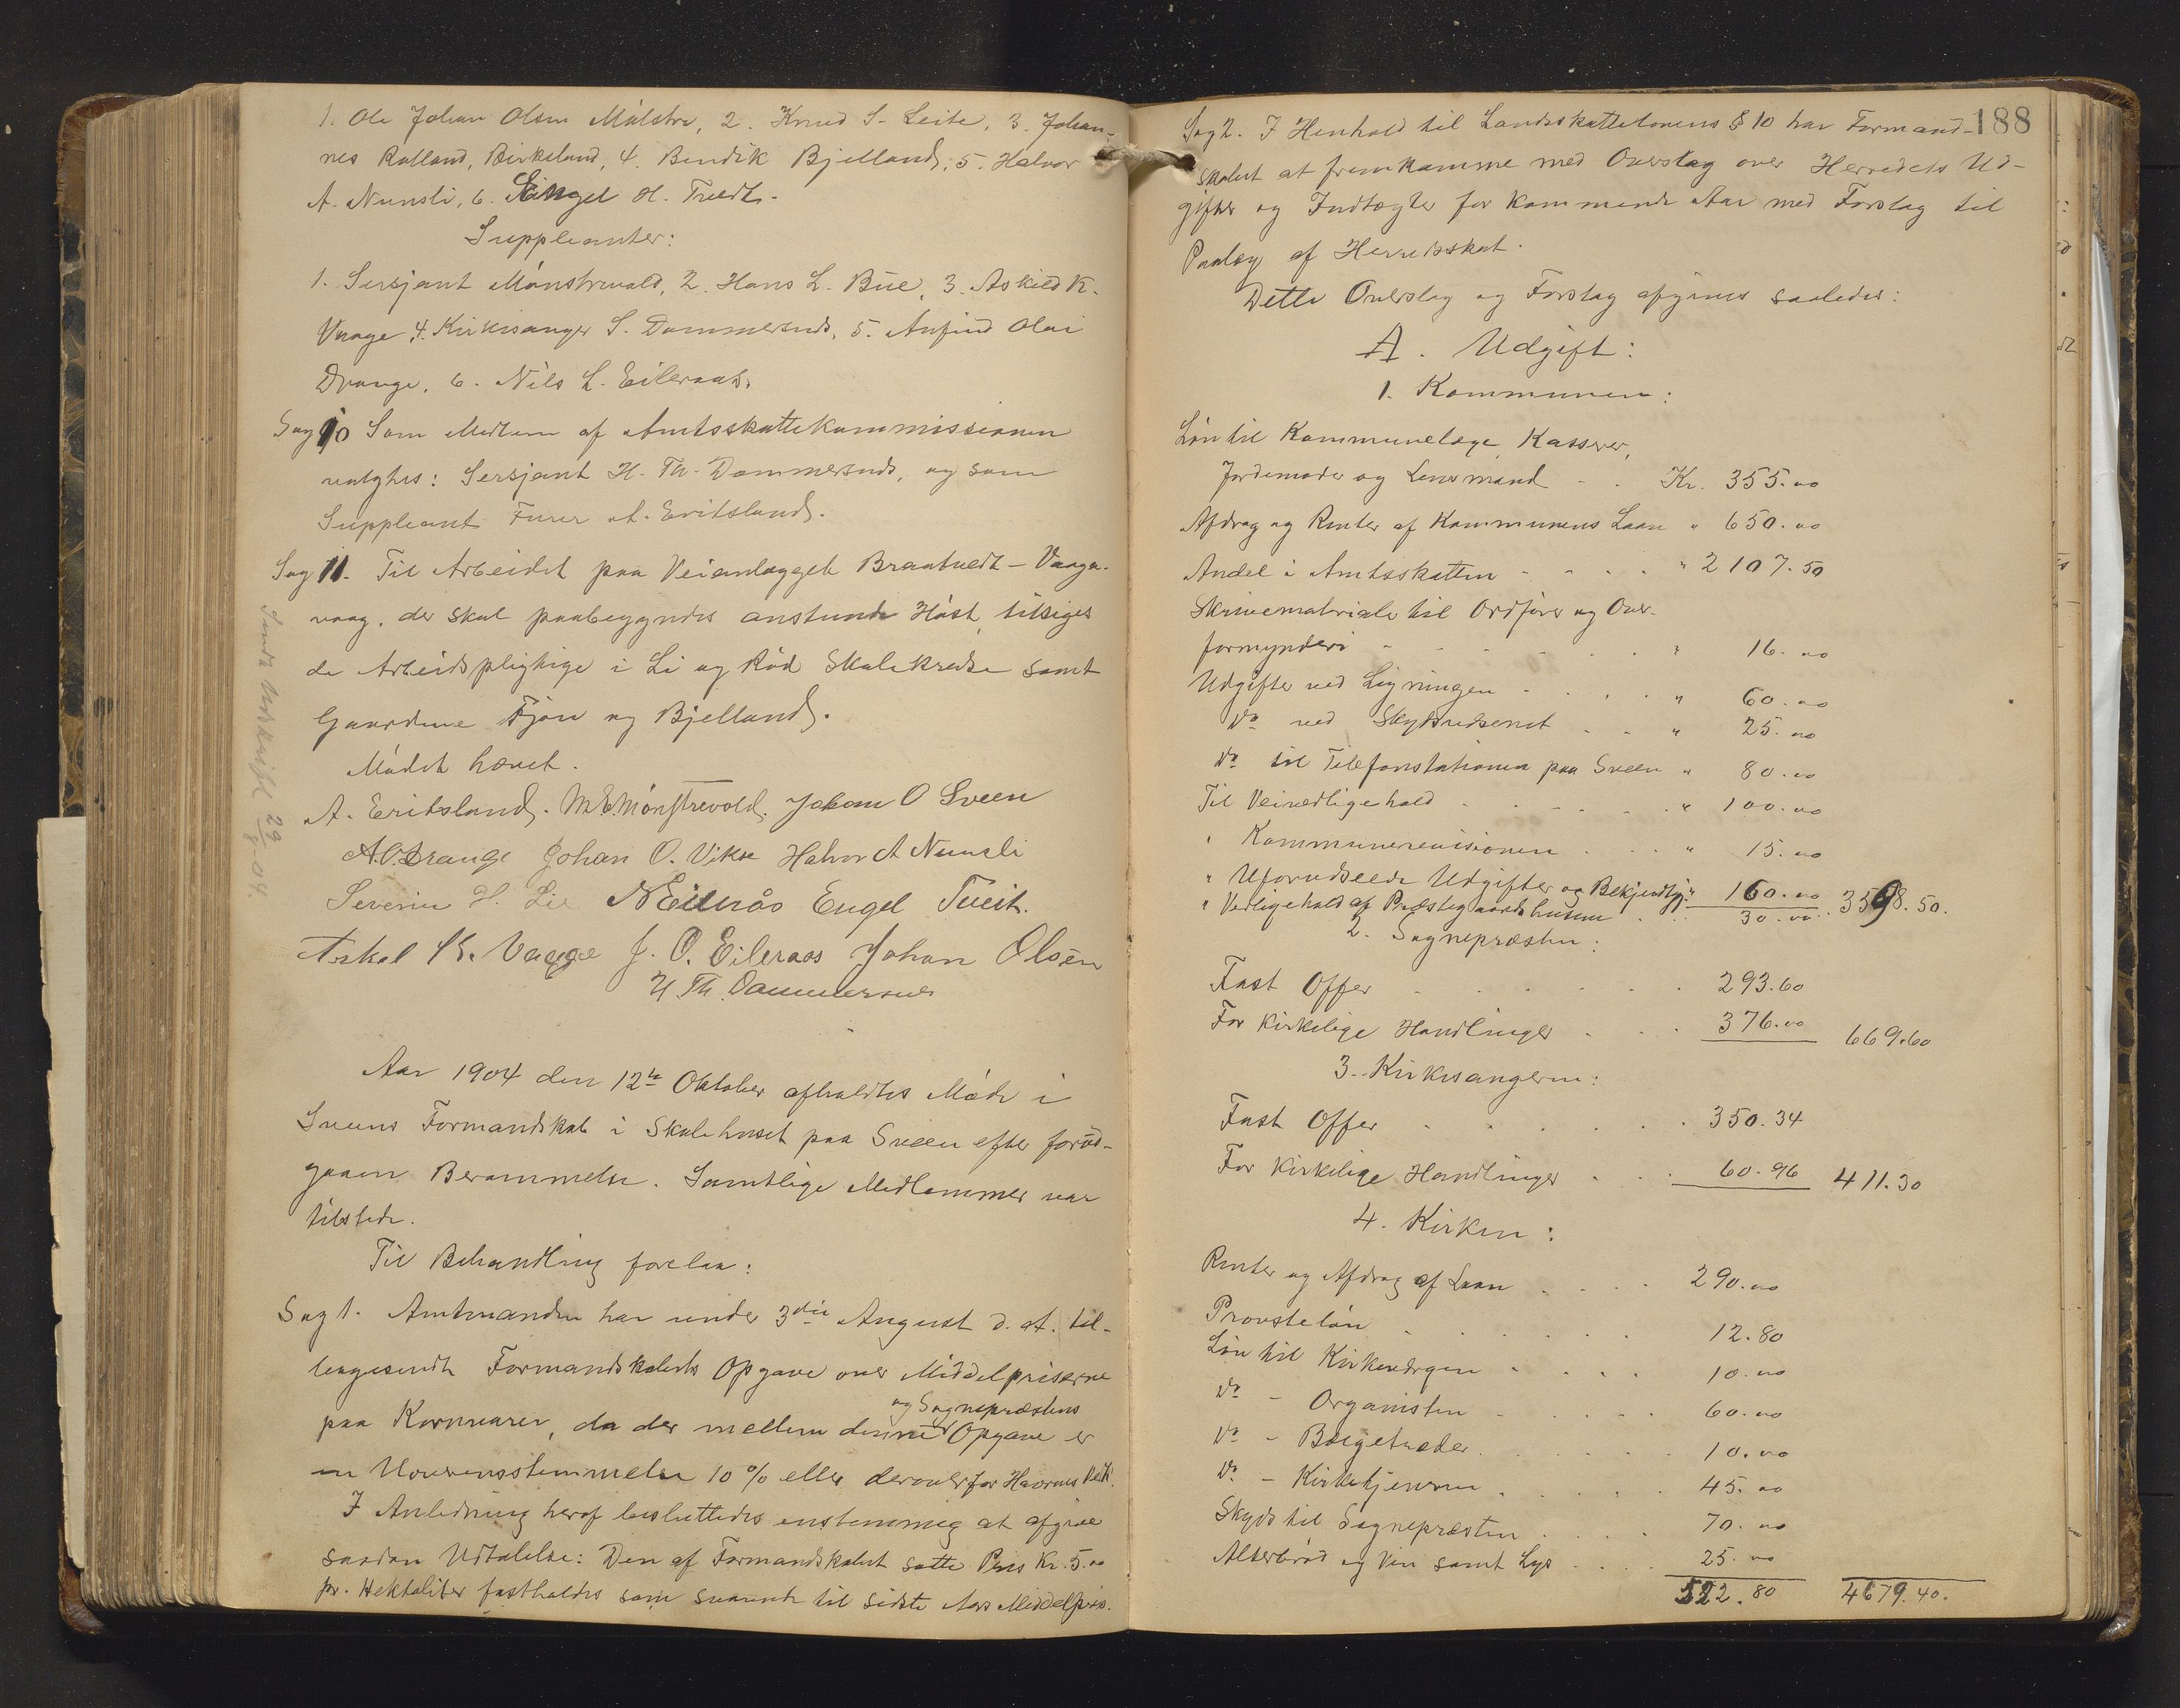 1. Ole Johan Olsen Målstre, 2. Knud S. Leite, 3. Johan-
nes Ralland, Birkeland, 4. Bendik Bjelland, 5. Halvor
A. Nunsli, 6. Engel H. Tvedt.
Suppleanter:
1. Sersjant Mønstrevold, 2. Hans L. Bue, 3. Askild K.
Vaage, 4. Kirkesanger S. Dommersnes, 5. Anfind Olai
Drange, 6. Nils L. Eileraas.
Sag 10 Som Medlem af Amtsskattekommissionen
valgtes: Sersjant H. Th. Dommersnes, og som
Suppleant Furer A. Eritsland.
Sag 11. Til Arbeidet paa Veianlægget Braatvedt - Vaaga-
vaag, der skal paabegyndes anstunde Høst, tilsiges
de Arbeidspligtige i Li og Rød Skolekredse samt
Gaardene Fjon og Bjelland.
Mødet hævet.
A. Eritsland. M.E. Mønstrevold. Johan O Sveen
A.O. Drange Johan O. Vikse Halvor A Nunsli
Severin H. Lie N Eilerås Engel Tveit.
Askel K. Vaage J. O. Eileraas Johan Olsen
H. Th. Dommersnes
Sendt Udskrift 29/8 04.
Aar 1904 den 12te Oktober afholdtes Møde i
Sveens Formandskab i Skolehuset paa Sveen efter forud-
gaaen Berammelse. Samtlige Medlemmer var
tilstede.
Til Behandling forelaa:
Sag 1. Amtmanden har under 3die August d. A. til-
bagesendt Formandskabets Opgave over Middelpriserne
og Sognepræstens
paa Kornvarer, da der mellem denne Opgave er
en Uoverensstemmelse 10 % eller derover for Havrens Vedk.
I Anledning heraf besluttedes enstemmig at afgive
saadan Udtalelse: Den af Formandskabet satte Pris Kr. 5.00
pr. Hektoliter fastholdes som svarende til sidste Aars Middelpris.
188
Sag 2. I Henhold til Landsskattelovens § 10 har Formand-
skabet at fremkomme med Overslag over Herredets Ud-
gifter og Indtægter for kommende Aar med Forslag til
Paalæg af Herredsskat.
Dette Overslag og Forslag afgives saaledes:
A. Udgift:
1. Kommunen:
Løn til Kommunelæge, Kasserer,
Jordemoder og Lensmand - - Kr. 355.00
Afdrag og Renter af Kommunens Laan " 650.00
Andel i Amtsskatten - - - - " 2107.50
Skrivematerialer til Ordfører og Over-
formynderi - - - - - - " 16.00
Udgifter ved Ligningen - - - - " 60.00
do ved Skydsvæsenet - - " 25.00
do til Telefonstationen paa Sveen " 80.00
Til Veivedligehold - - - - - " 100.00
" Kommunerevisionen - - - " 15.00
" Uforudseede Udgifter og Bekjendtg. " 160.00 3598.50.
" Vedligehold af Præstegaardshusene . . 30.00
2. Sognepræsten:
Fast Offer . . . . . . 293.60
For kirkelige Handlinger . . . 376.00 669.60
3. Kirkesangeren:
Fast Offer . . . . . . 350.34
For kirkelige Handlinger . . . 60.96 411.30
4. Kirken:
Renter og Afdrag af Laan . . . . 290.00
Provsteløn . . . . . . 12.80
Løn til Kirkeværgen . . . . 10.00
do - Organisten . . . . . 60.00
do - Bælgetræder . . . . . 10.00
do - Kirketjeneren . . . . . 45.00
Skyds til Sognepræsten . . . . 70.00
Alterbrød og Vin samt Lys . . . . 25.00
522.80 4679.40.